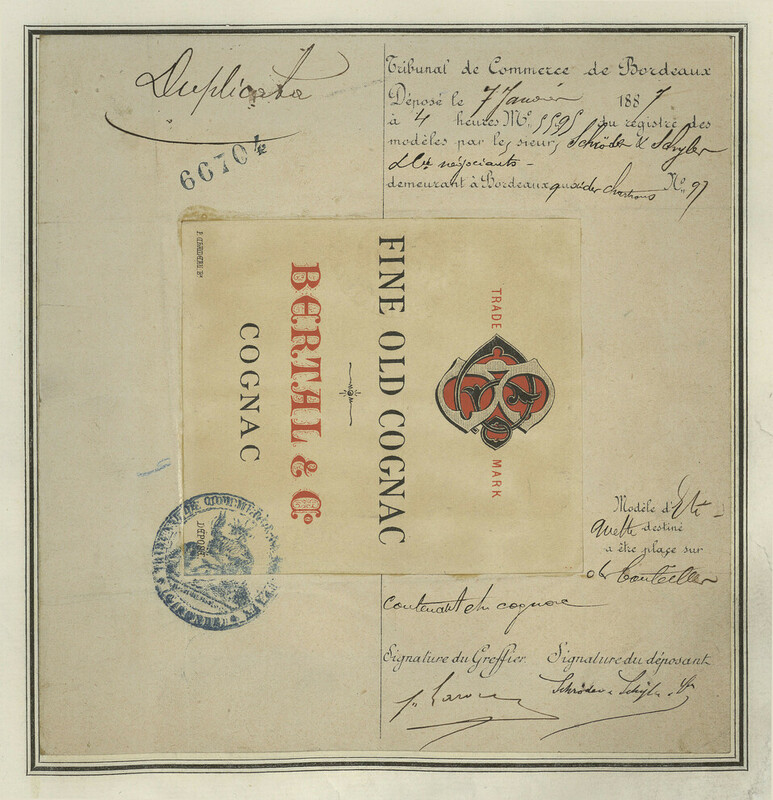 Duplicata
66704
Tribunal de Commerce de Bordeaux
Déposé le 7 Janvier 1887
à 4 heures No. 5595 du registre des
modèles par les sieurs Schröder & Schyler
& Cie négociants -
demeurant à Bordeaux quai des Chartrons No. 97
TRADE MARK
FINE OLD COGNAC
BERTAL & Co.
COGNAC
TRIBUNAL DE COMMERCE
DÉPOSÉ
Modèle d'Eti-
quette destiné
à être placé sur
des bouteilles
contenant du cognac
Signature du Greffier. Signature du déposant
Schröder & Schyler & Co